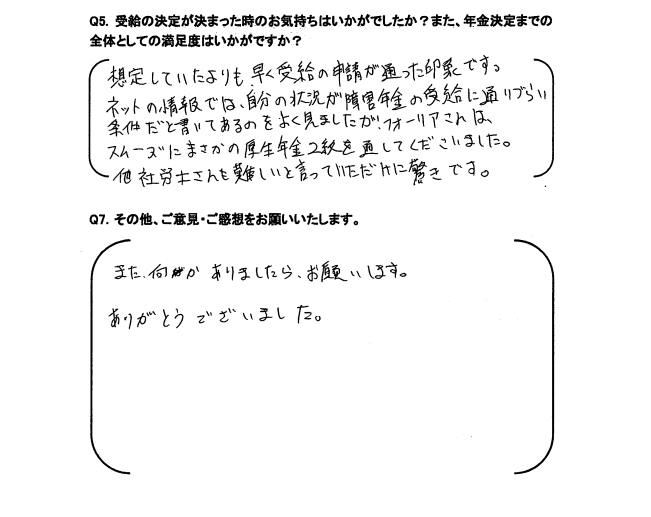 Q5. 受給の決定が決まった時のお気持ちはいかがでしたか？また、年金決定までの
全体としての満足度はいかがですか？
想定していたよりも早く受給の申請が通った印象です。
ネットの情報では、自分の状況が障害年金の受給に通りづらい
条件だと書いてあるのをよく見ましたが、フォーリアさんは、
スムーズにまさかの厚生年金2級を通してくださいました。
他社労士さんも難しいと言っていただけに驚きです。
Q7. その他、ご意見・ご感想をお願いいたします。
また、何かありましたら、お願いします。
ありがとうございました。